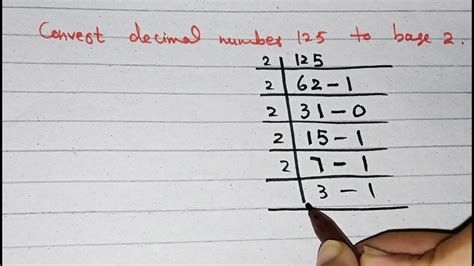 Convert decimal number 125 to base 2.
2 125
2 62 - 1
2 31 - 0
2 15 - 1
2 7 - 1
3 - 1